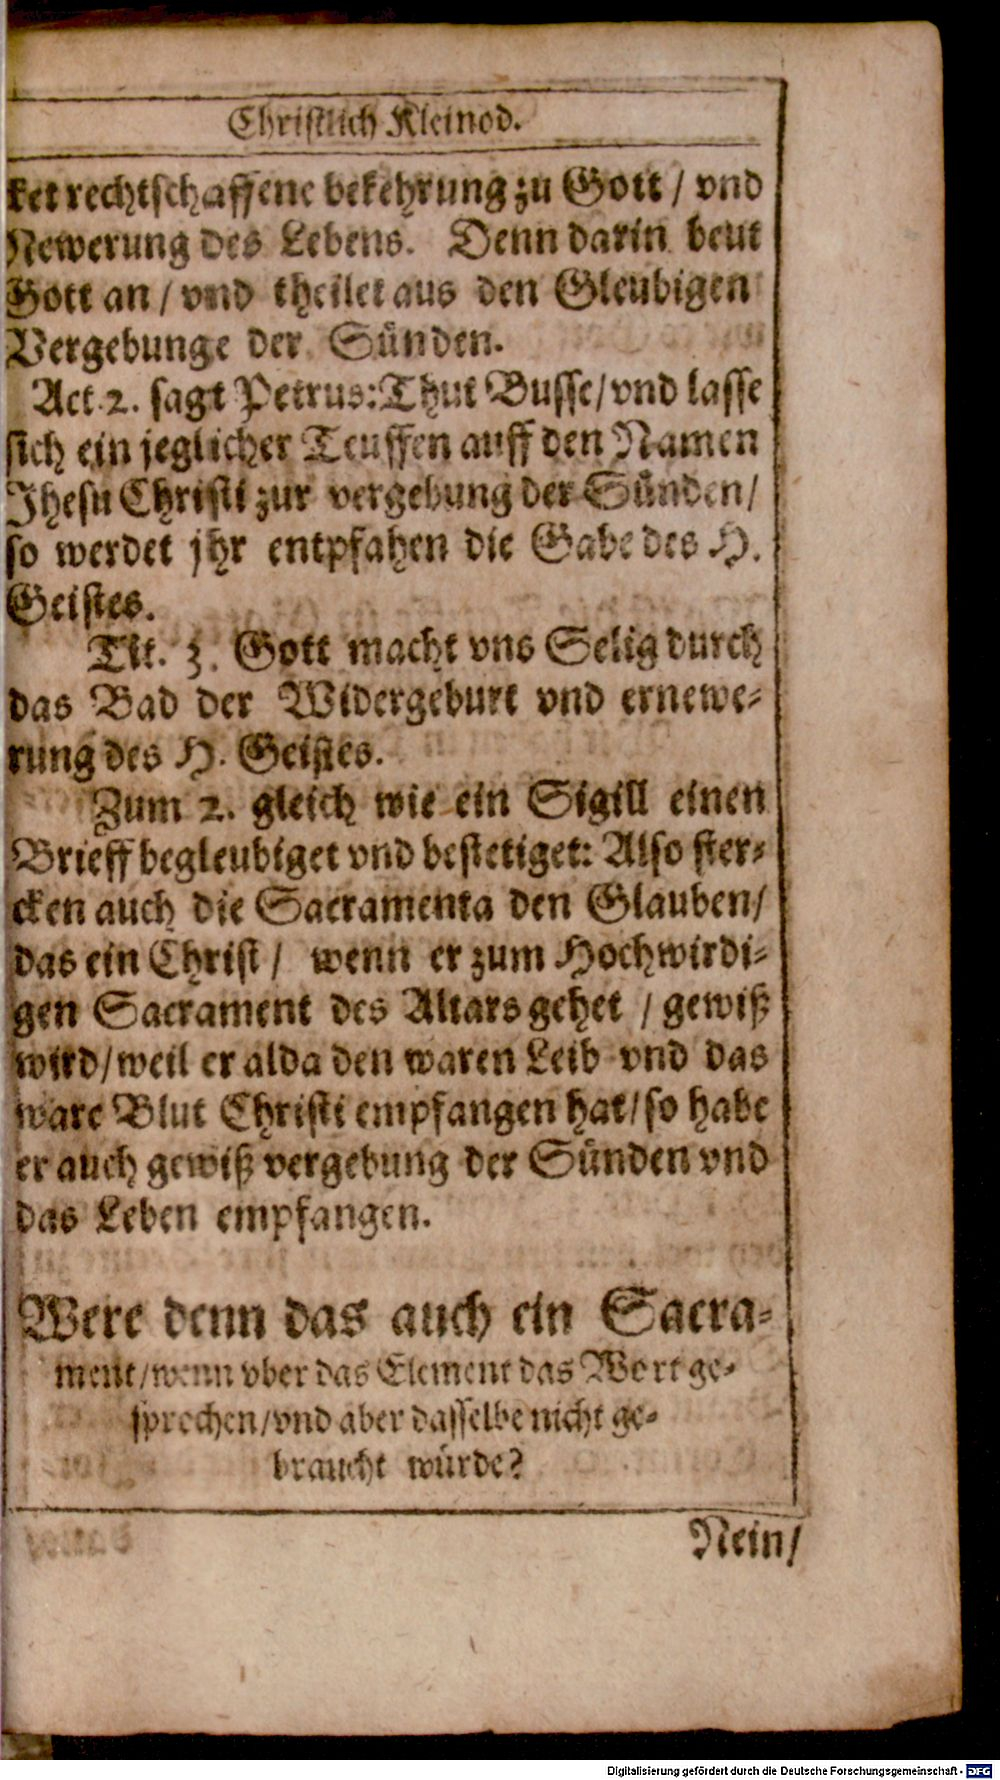 Christlich Kleinod.
ket rechtschaffene bekehrung zu Gott / vnd
Newerung des Lebens. Denn darin beut
Gott an / vnd theilet aus den Gleubigen
Vergebunge der Sünden.
Act. 2. sagt Petrus: Thut Busse / vnd lasse
sich ein jeglicher Teuffen auff den Namen
Jhesu Christi zur vergebung der Sünden /
so werdet jhr entpfahen die Gabe des H.
Geistes.
Tit. 3. Gott macht vns Selig durch
das Bad der Widergeburt vnd ernewe-
rung des H. Geistes.
Zum 2. gleich wie ein Sigill einen
Brieff begleubiget vnd bestetiget: Also ster-
cken auch die Sacramenta den Glauben /
das ein Christ / wenn er zum Hochwirdi-
gen Sacrament des Altars gehet / gewiß
wird / weil er alda den waren Leib vnd das
ware Blut Christi empfangen hat / so habe
er auch gewiß vergebung der Sünden vnd
das Leben empfangen.
Were denn das auch ein Sacra-
ment / wenn vber das Element das Wort ge-
sprochen / vnd aber dasselbe nicht ge-
braucht würde?
Nein /
Digitalisierung gefördert durch die Deutsche Forschungsgemeinschaft - DFG